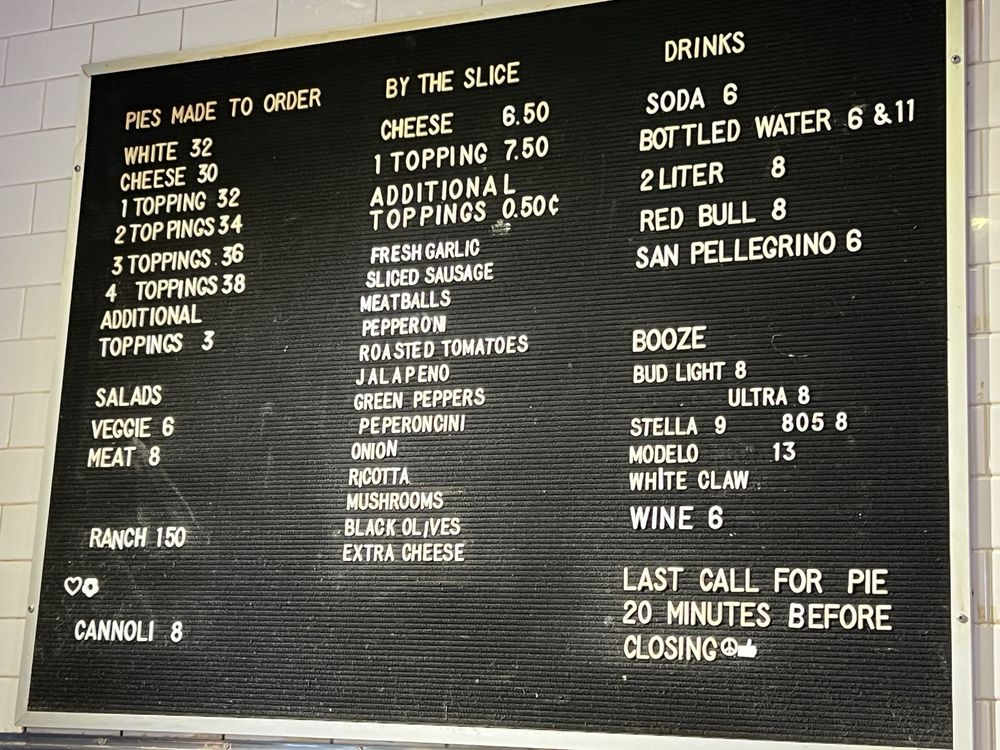 PIES MADE TO ORDER
WHITE 32
CHEESE 30
1 TOPPING 32
2 TOPPINGS 34
3 TOPPINGS. 36
4 TOPPINGS 38
ADDITIONAL
TOPPINGS 3
SALADS
VEGGIE 6
MEAT 8
RANCH 150
CANNOLI 8
BY THE SLICE
CHEESE 6.50
1 TOPPING 7.50
ADDITIONAL
TOPPINGS 0.50¢
FRESH GARLIC
SLICED SAUSAGE
MEATBALLS
PEPPERONI
ROASTED TOMATOES
JALAPENO
GREEN PEPPERS
PEPERONCINI
ONION
RICOTTA
MUSHROOMS
BLACK OLIVES
EXTRA CHEESE
DRINKS
SODA 6
BOTTLED WATER 6 & 11
2 LITER 8
RED BULL 8
SAN PELLEGRINO 6
BOOZE
BUD LIGHT 8
ULTRA 8
STELLA 9 805 8
MODELO 13
WHITE CLAW
WINE 6
LAST CALL FOR PIE
20 MINUTES BEFORE
CLOSING